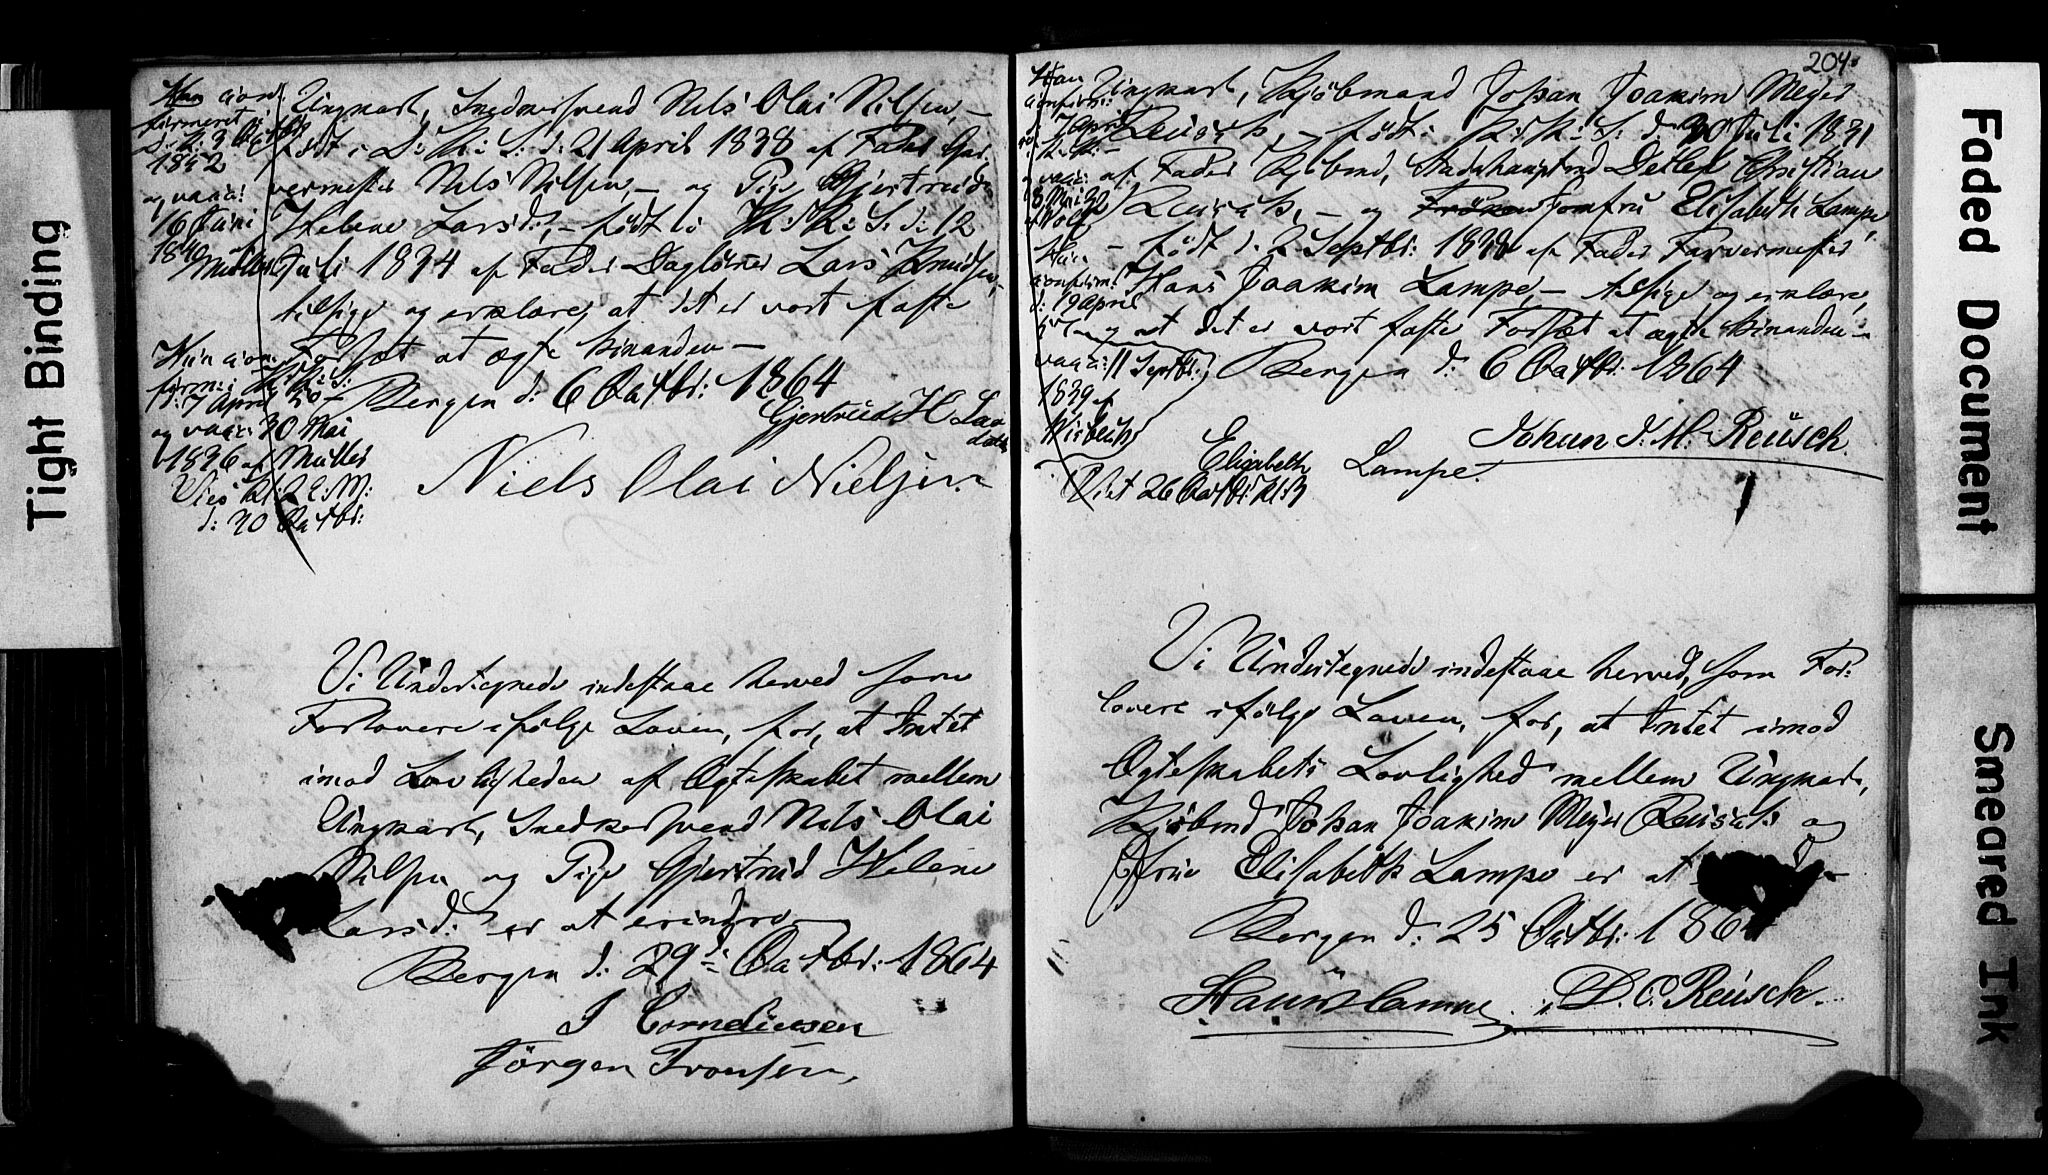 Tight Binding
Han con
firmeret i
D. K. 3 Octbr
1852
og vacc:
16 Juni
1840
Müller
Ungkarl, Snedkersvend Nils Olai Nilsen, –
født i D: K: S: d: 21 April 1838 af Fader Gar-
vermester Nils Nilsen, – og Pige Gjertrud
Helene Larsd:, – født i K: K: S. d: 12
Juli 1834 af Fader Dagleier Lars Knudsen, –
tilsige og erklære, at det er vort faste
Forsæt at ægte hinanden –
Bergen d: 6 Octbr: 1864
Hun con
firm: i K: K: S:
d: 7 April 50 –
og vacc: 30 Mai
1836 af Müller
Viet Kl: 2 E: M:
d: 30 Octbr:
Gjertrud H Lars
datter
Niels Olai Nielsen
Vi Undertegnede indestaae herved som
Forlovere ifølge Loven, for, at Intet
imod Lovligheden af Ægteskabet mellem
Ungkarl, Snedkersvend Nils Olai
Nilsen og Pige Gjertrud Helene
Larsd: er at erindre –
Bergen d: 29de Octbr: 1864
J Corneliusen
Jørgen Fronsen,
204.
Han
confirme:
7 April
K. K: –
vacc:
8 Mai 32
Hun
confirm:
d: 19 April
vacc: 11 Septbr:
1839 af
Wisbech
Viet 26 Octbr: Kl: 3
Ungkarl, Kjøbmand Johan Joakim Meyer
Reusch, – født i K: K: S: d: 30 Juli 1831
af Fader Kjøbmd, Stadshauptmd Detlef Christian
Reusch, – og Frøken Jomfru Elisabeth Lampe,
– født d. 2 Septbr: 1838 af Fader Farvermester
Hans Joakim Lampe, – tilsige og erklære,
at det er vort faste Forsæt at ægte hinanden –
Bergen d: 6 Octbr: 1864
Johan J. M. Reusch.
Elisabeth Lampe.
Vi Undertegnede indestaae herved, som For-
lovere ifølge Loven, for, at Intet imod
Ægteskabets Lovlighed mellem Ungkarl,
Kjøbmd Johan Joakim Meyer Reusch og
Jfrue Elisabeth Lampe er at
Bergen d: 25 Octbr: 1864
Hans Lampe. D. C. Reusch.
Faded Document
Smeared Ink